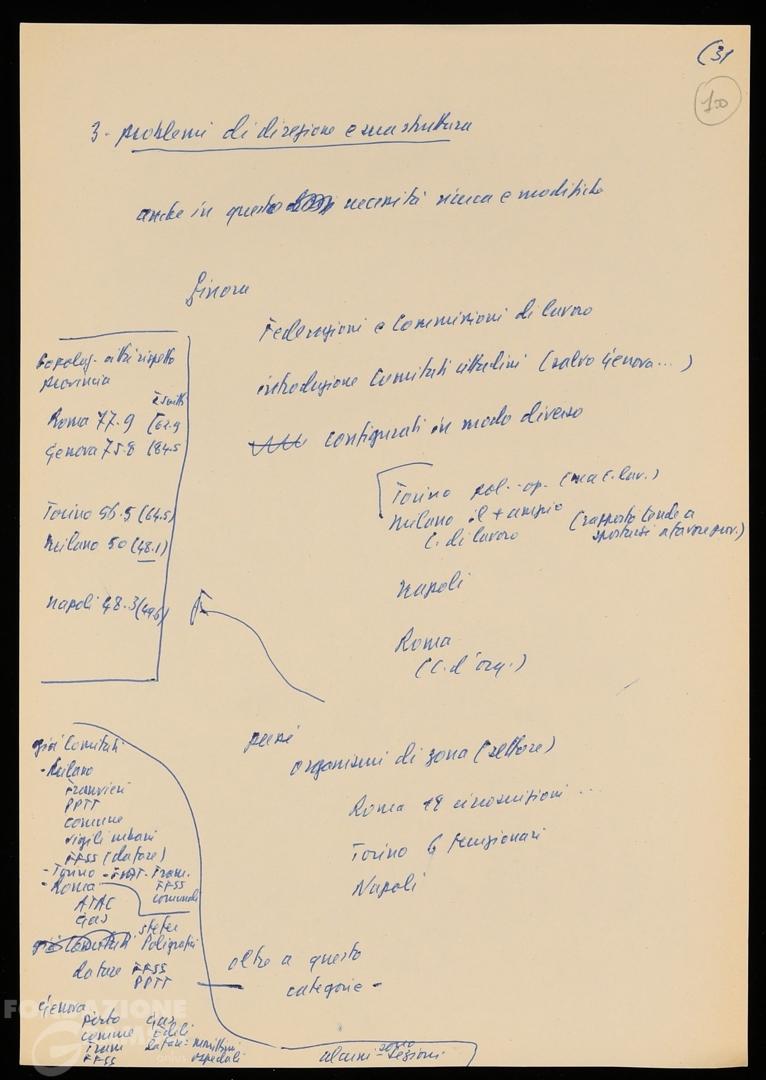 (31
100
3- problemi di direzione e sua struttura
anche in questo necessità ricerca e modifiche
Finora
Federazioni e Commissioni di lavoro
introduzione Comitati cittadini (salvo Genova...)
configurati in modo diverso
Torino pol.-op. (ma C. lav.)
Milano il + ampio
C. di lavoro
(rapporto tende a
spostarsi a favore prov.)
Napoli
Roma
(C. d'org.)
Popolaz. città rispetto
provincia
iscritti
Roma 77.9 (62.9
Genova 75.8 (84.5
Torino 56.5 (64.5)
Milano 50 (48.1)
Napoli 48.3 (49.6)
organismi di zona (settore)
Roma 18 circoscrizioni ...
Torino 6 funzionari
Napoli
oltre a questo
categorie -
già Comitati
- Milano
Tranvieri
PPTT
comune
vigili urbani
FFSS (da fare)
- Torino - FIAT - Tram.
FFSS
comunali
- Roma
ATAC
Gas
Stefer
Poligrafici
già Comitati
da fare FFSS
PPTT
Genova
Porto Gas
comune Edili
Tram da fare: marittimi
FFSS ospedali
alcuni sono Sezioni